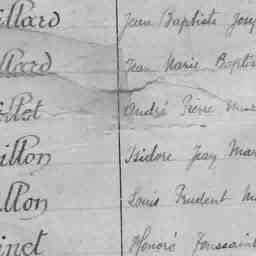 illard Jean Baptiste Jose
llard Jean Marie Bapti
André Pierre
illon Isidore Jean Mar
llon Louis Prudent M
inet Honoré Toussaint